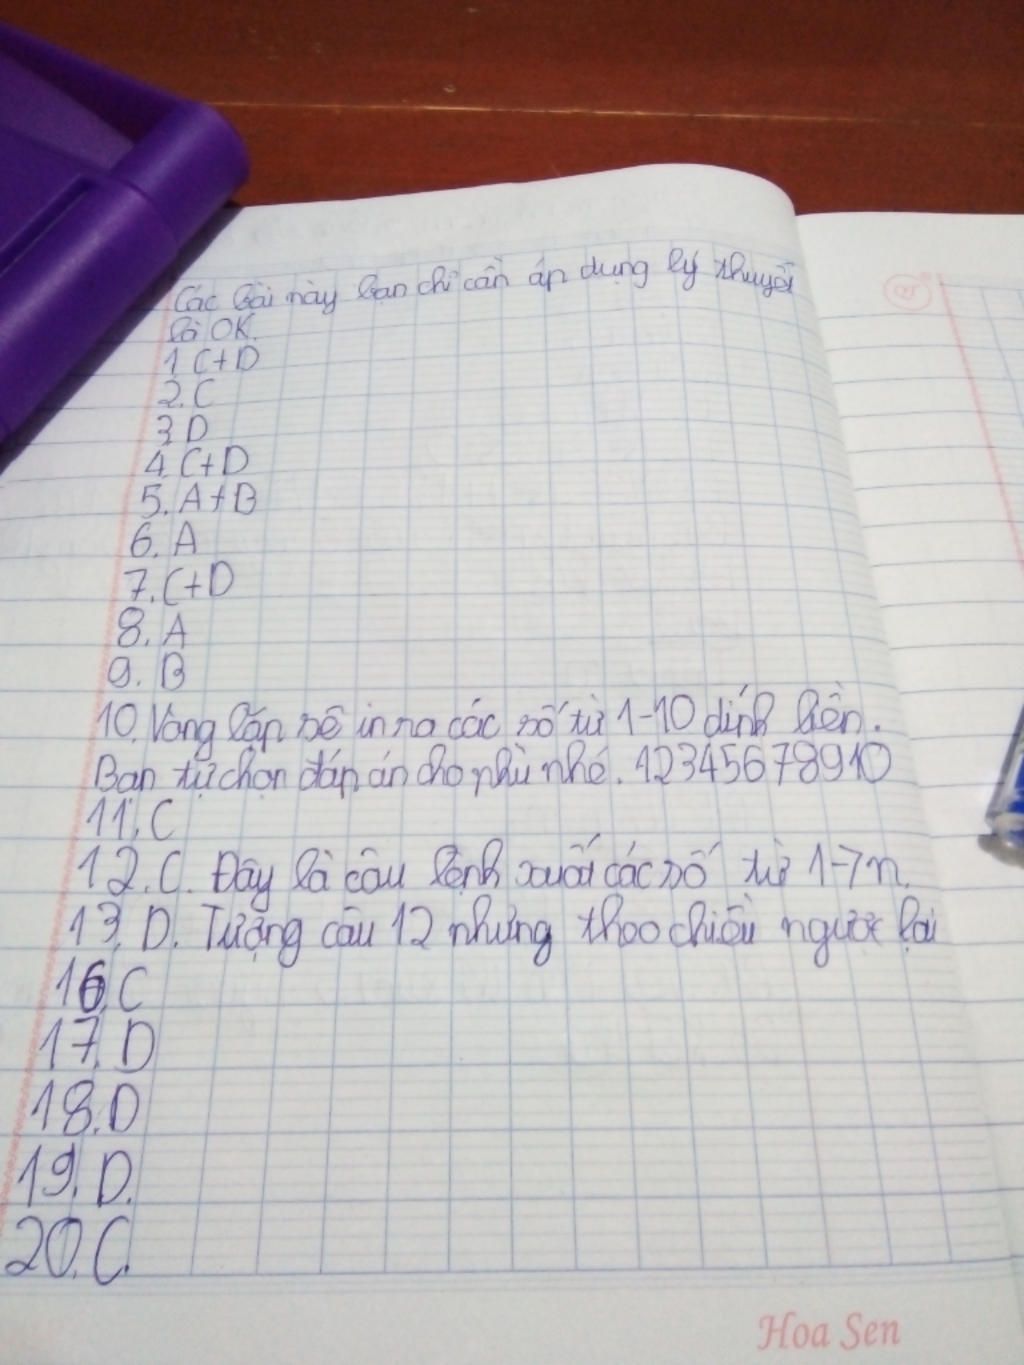 Các bài này bạn chỉ cần áp dụng lý thuyết
là OK.
1. C+D
2. C
3. D
4. C+D
5. A+B
6. A
7. C+D
8. A
9. B
10. Vòng lặp sẽ in ra các số từ 1-10 dính liền.
Bạn tự chọn đáp án cho phù nhé. 12345678910
11. C
12. C. Đây là câu lệnh xuất các số từ 1->n.
13. D. Tượng câu 12 nhưng theo chiều ngược lại
16. C
17. D
18. D
19. D.
20. C.
Hoa Sen